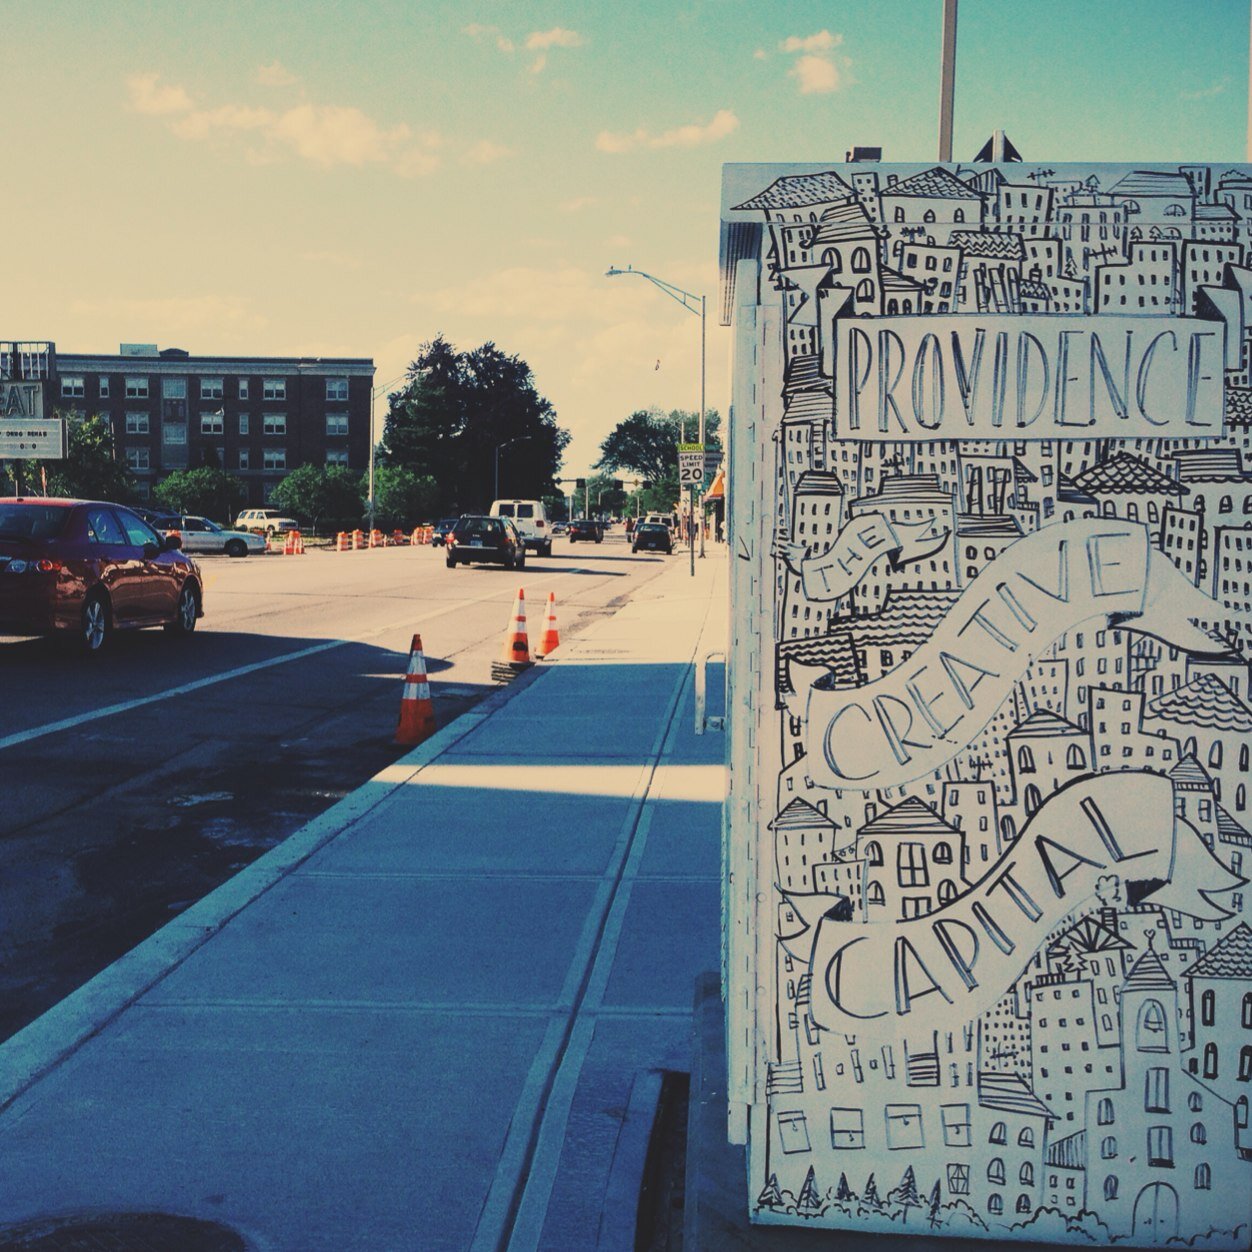 EAT
SCHOOL
SPEED
LIMIT
20
PROVIDENCE
THE
CREATIVE
CAPITAL